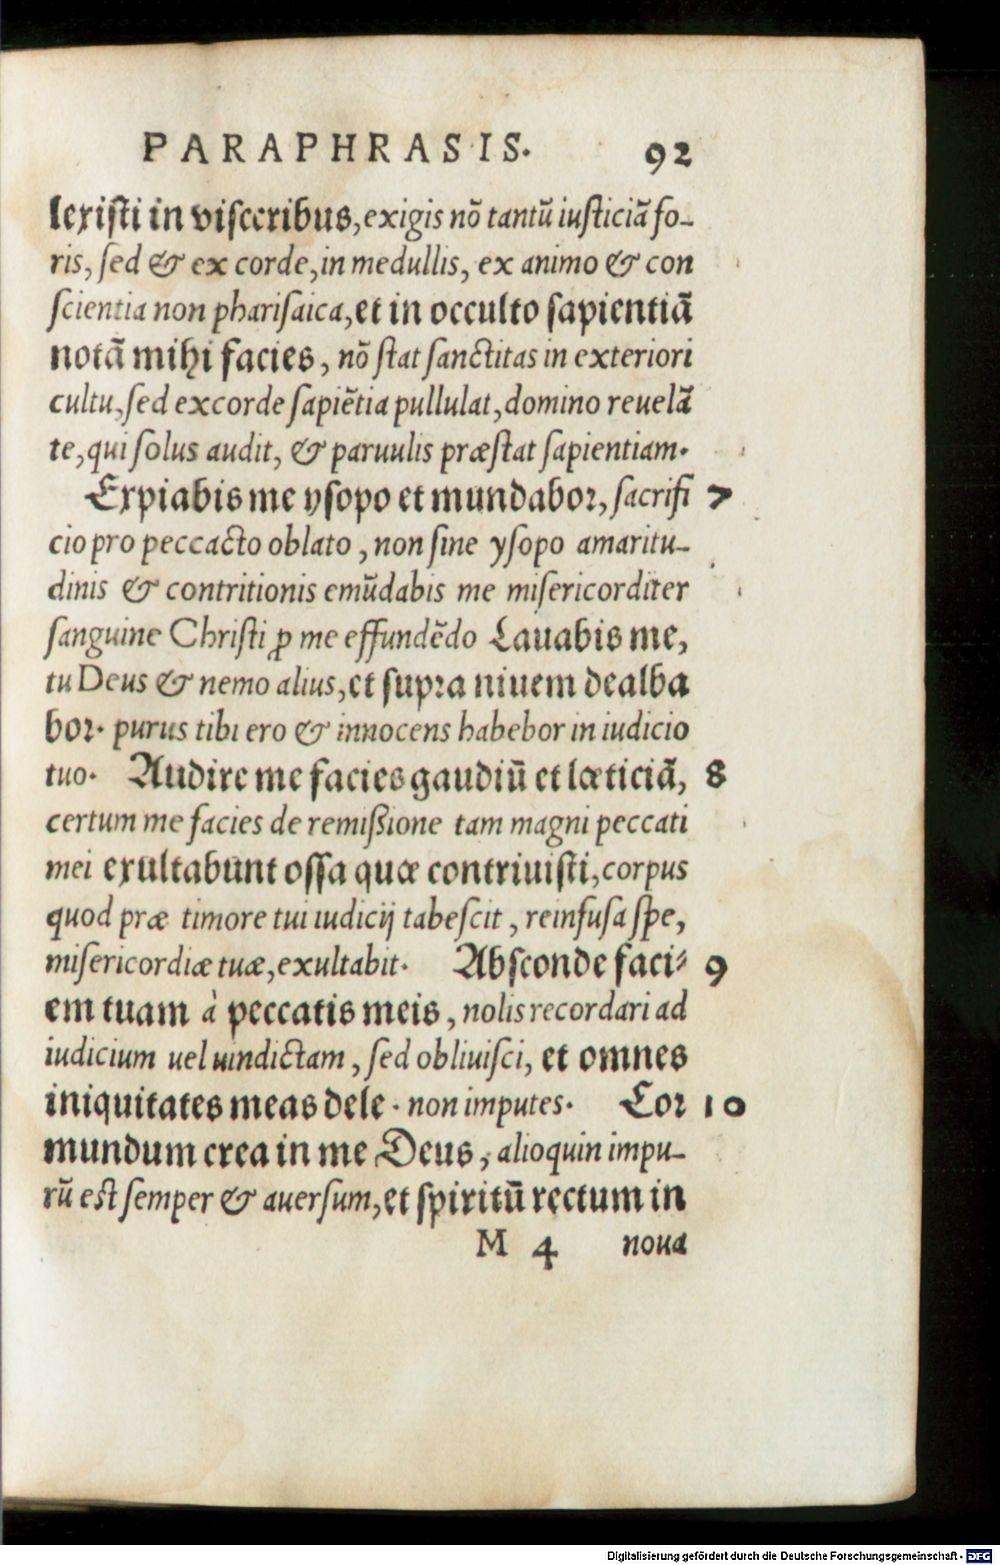 PARAPHRASIS. 92
lexisti in visceribus, exigis nõ tantũ iusticiã fo-
ris, sed & ex corde, in medullis, ex animo & con
scientia non pharisaica, et in occulto sapientiã
notã mihi facies, nõ stat sanctitas in exteriori
cultu, sed excorde sapiẽtia pullulat, domino reuelã
te, qui solus audit, & paruulis præstat sapientiam.
Expiabis me ysopo et mundabor, sacrifi 7
cio pro peccacto oblato, non sine ysopo amaritu-
dinis & contritionis emũdabis me misericorditer
sanguine Christi ꝓ me effundẽdo Lauabis me,
tu Deus & nemo alius, et supra niuem dealba
bor. purus tibi ero & innocens habebor in iudicio
tuo. Audire me facies gaudiũ et læticiã, 8
certum me facies de remißione tam magni peccati
mei exultabunt ossa quæ contriuisti, corpus
quod præ timore tui iudicij tabescit, reinfusa spe,
misericordiæ tuæ, exultabit. Absconde faci- 9
em tuam à peccatis meis, nolis recordari ad
iudicium uel uindictam, sed obliuisci, et omnes
iniquitates meas dele. non imputes. Cor 10
mundum crea in me Deus, alioquin impu-
rũ est semper & auersum, et spiritũ rectum in
M 4 noua
Digitalisierung gefördert durch die Deutsche Forschungsgemeinschaft - DFG